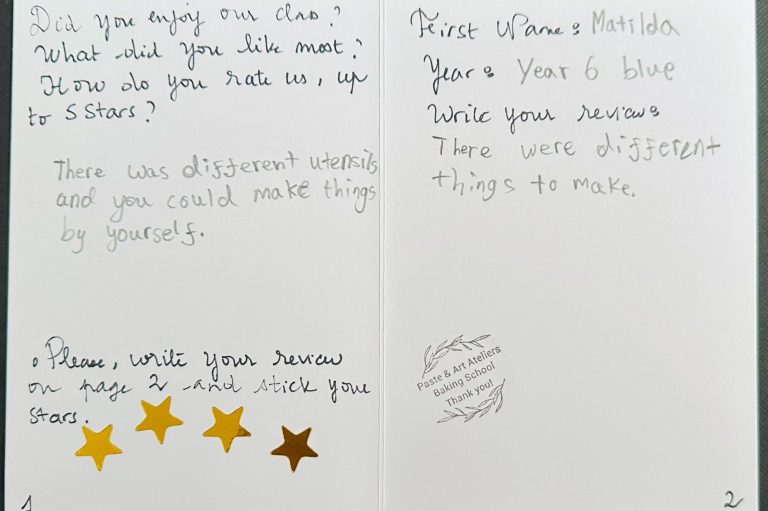 Did you enjoy our class?
What did you like most?
How do you rate us, up
to 5 Stars?
There was different utensils
and you could make things
by yourself.
• Please, write your review
on page 2 and stick your
stars.
1
First Name: Matilda
Year: Year 6 blue
Write your review:
There were different
things to make.
Paste & Art Ateliers
Baking School
Thank you!
2